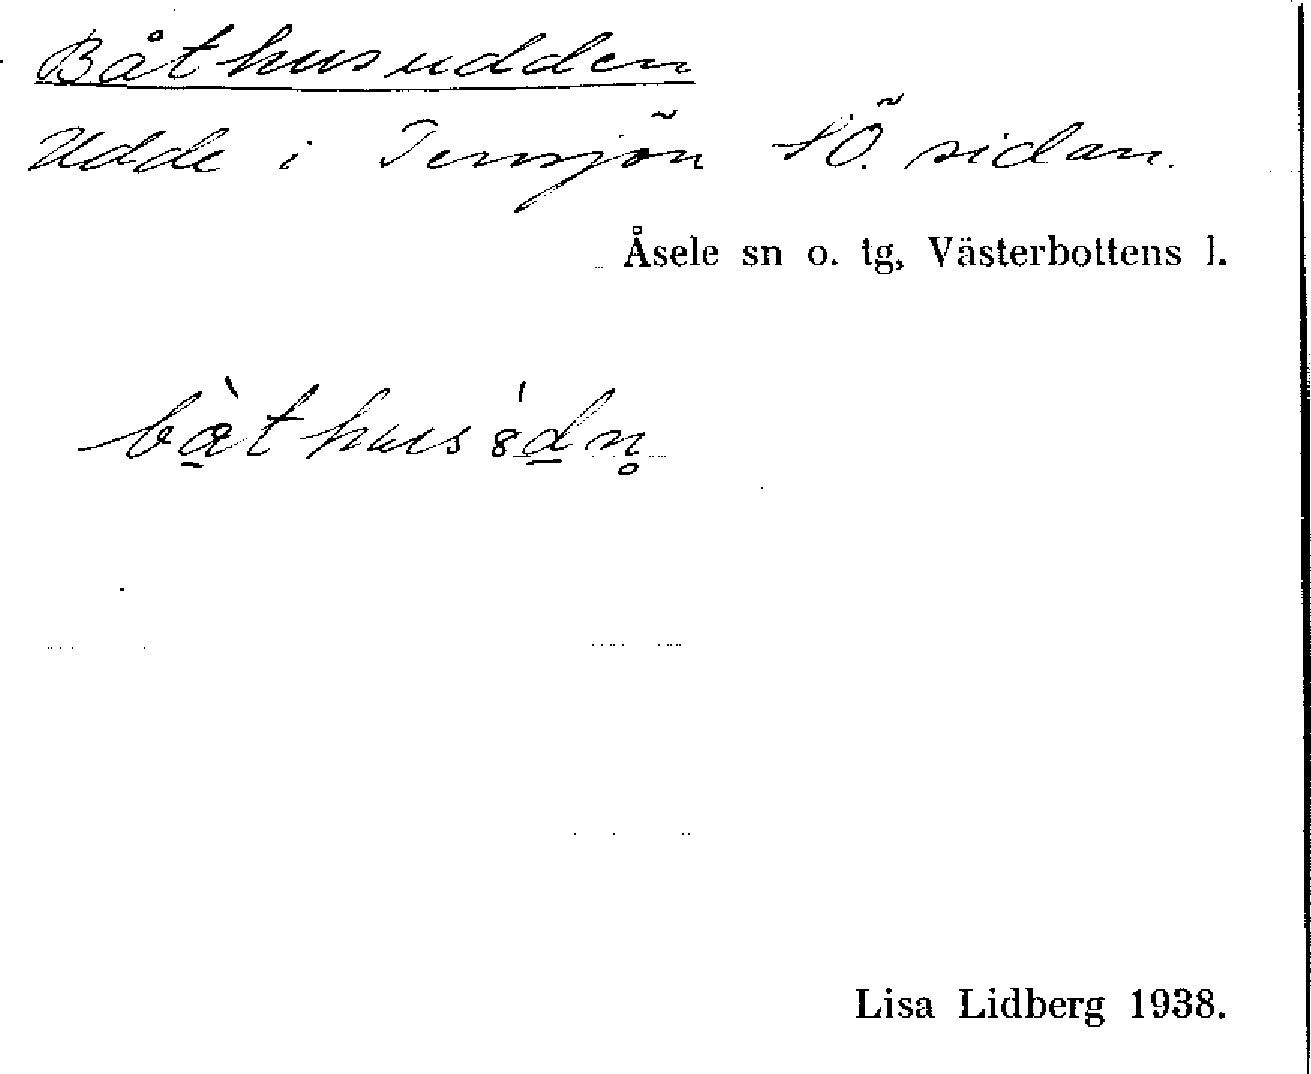 Båthusudden
Udde i Tensjön SÖ. sidan.
Åsele sn o. tg, Västerbottens l.
bàthus
Lisa Lidberg 1938.